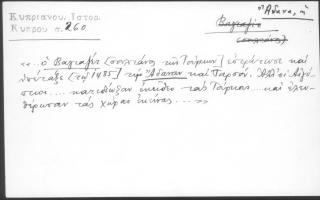 Κυπριανου. Ιστορ.
Κυπρου σ. 260
Ἄδανα, η
Βαγιαζίτ
(σουλτάνος)
«... ὁ Βαγιαζίτ [σουλτάνος τῶν Τούρκων] ἐστράτευσε καὶ
ὑπέταξε (τῷ 1485) τὴν Ἄδαναν καὶ Ταρσόν. Ἀλλ' οἱ Αἰγύ-
πτιοι .... κατεδίωξαν ἐκεῖθεν τοὺς Τούρκους .... καὶ ἐλευ-
θέρωσαν τὰς χώρας ἐκείνας .... »